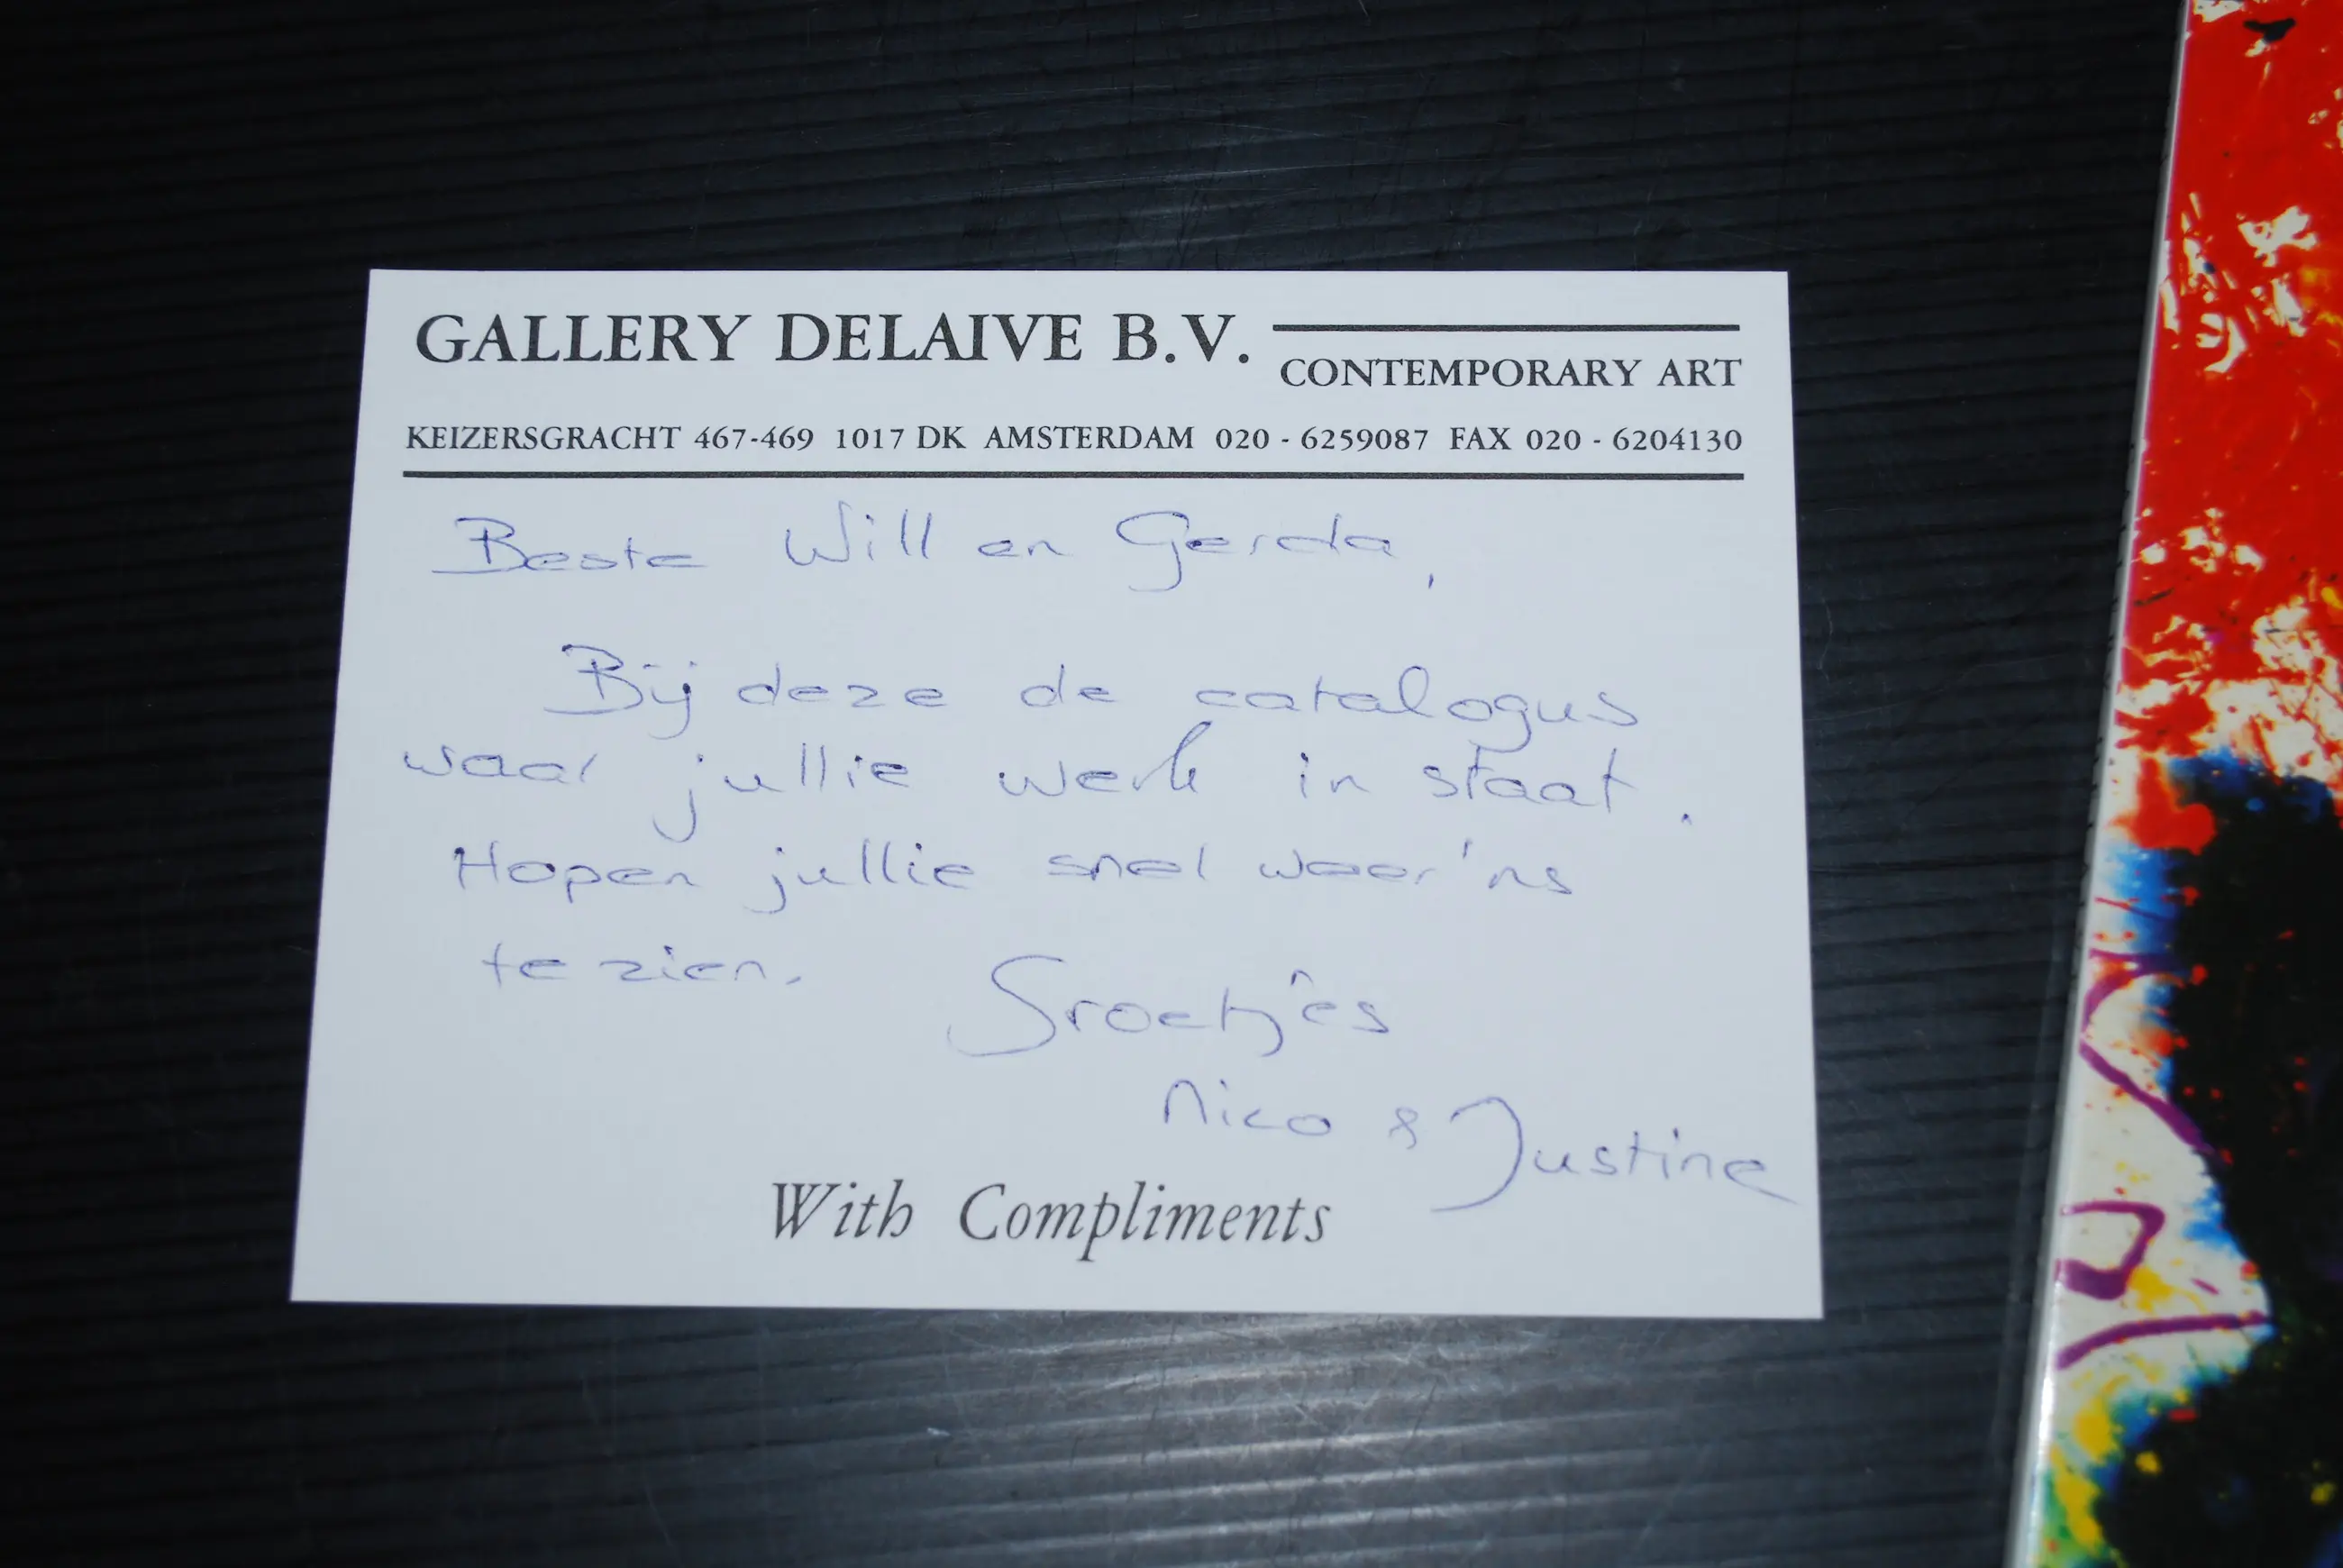 GALLERY DELAIVE B.V.
CONTEMPORARY ART
KEIZERSGRACHT 467-469 1017 DK AMSTERDAM 020 - 6259087 FAX 020 - 6204130
Beste Will en Gerda,
Bij deze de catalogus
waar jullie werk in staat.
Hopen jullie snel weer 'ns
te zien.
Groetjes
Nico & Justine
With Compliments